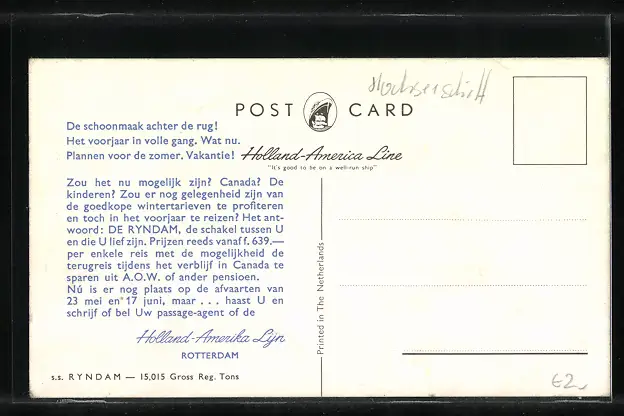 Hochseeschiff
POST CARD
De schoonmaak achter de rug!
Het voorjaar in volle gang. Wat nu.
Plannen voor de zomer. Vakantie!
Holland-America Line
"It's good to be on a well-run ship"
Zou het nu mogelijk zijn? Canada? De
kinderen? Zou er nog gelegenheid zijn van
de goedkope wintertarieven te profiteren
en toch in het voorjaar te reizen? Het ant-
woord: DE RYNDAM, de schakel tussen U
en die U lief zijn. Prijzen reeds vanaf f. 639.—
per enkele reis met de mogelijkheid de
terugreis tijdens het verblijf in Canada te
sparen uit A.O.W. of ander pensioen.
Nú is er nog plaats op de afvaarten van
23 mei en 17 juni, maar . . . haast U en
schrijf of bel Uw passage-agent of de
Holland-Amerika Lijn
ROTTERDAM
s.s. RYNDAM — 15,015 Gross Reg. Tons
Printed in The Netherlands
€2,